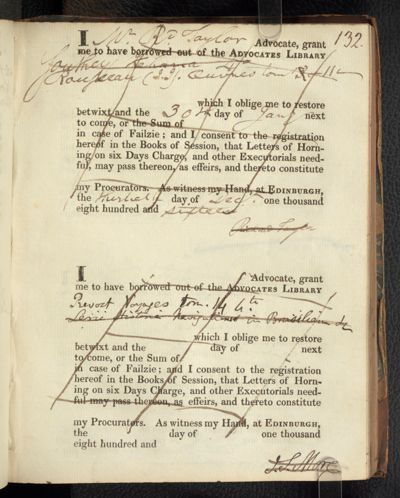 132.
I Mr Rd Taylor Advocate, grant
me to have borrowed out of the ADVOCATES LIBRARY
Rousseau (J.J.) Oeuvres tom
which I oblige me to restore
betwixt and the 30th day of Jany next
to come, or the Sum of
in case of Failzie; and I consent to the registration
hereof in the Books of Session, that Letters of Horn-
ing on six Days Charge, and other Executorials need-
ful, may pass thereon, as effeirs, and thereto constitute
my Procurators. As witness my Hand, at EDINBURGH,
the thirtieth day of Decr. one thousand
eight hundred and sixteen
I Advocate, grant
me to have borrowed out of the ADVOCATES LIBRARY
Prevost Voyages tom. 14 4to
Lerii Historia Navigationis in Brasiliam &c
which I oblige me to restore
betwixt and the day of next
to come, or the Sum of
in case of Failzie; and I consent to the registration
hereof in the Books of Session, that Letters of Horn-
ing on six Days Charge, and other Executorials need-
ful may pass thereon, as effeirs, and thereto constitute
my Procurators. As witness my Hand, at EDINBURGH,
the day of one thousand
eight hundred and